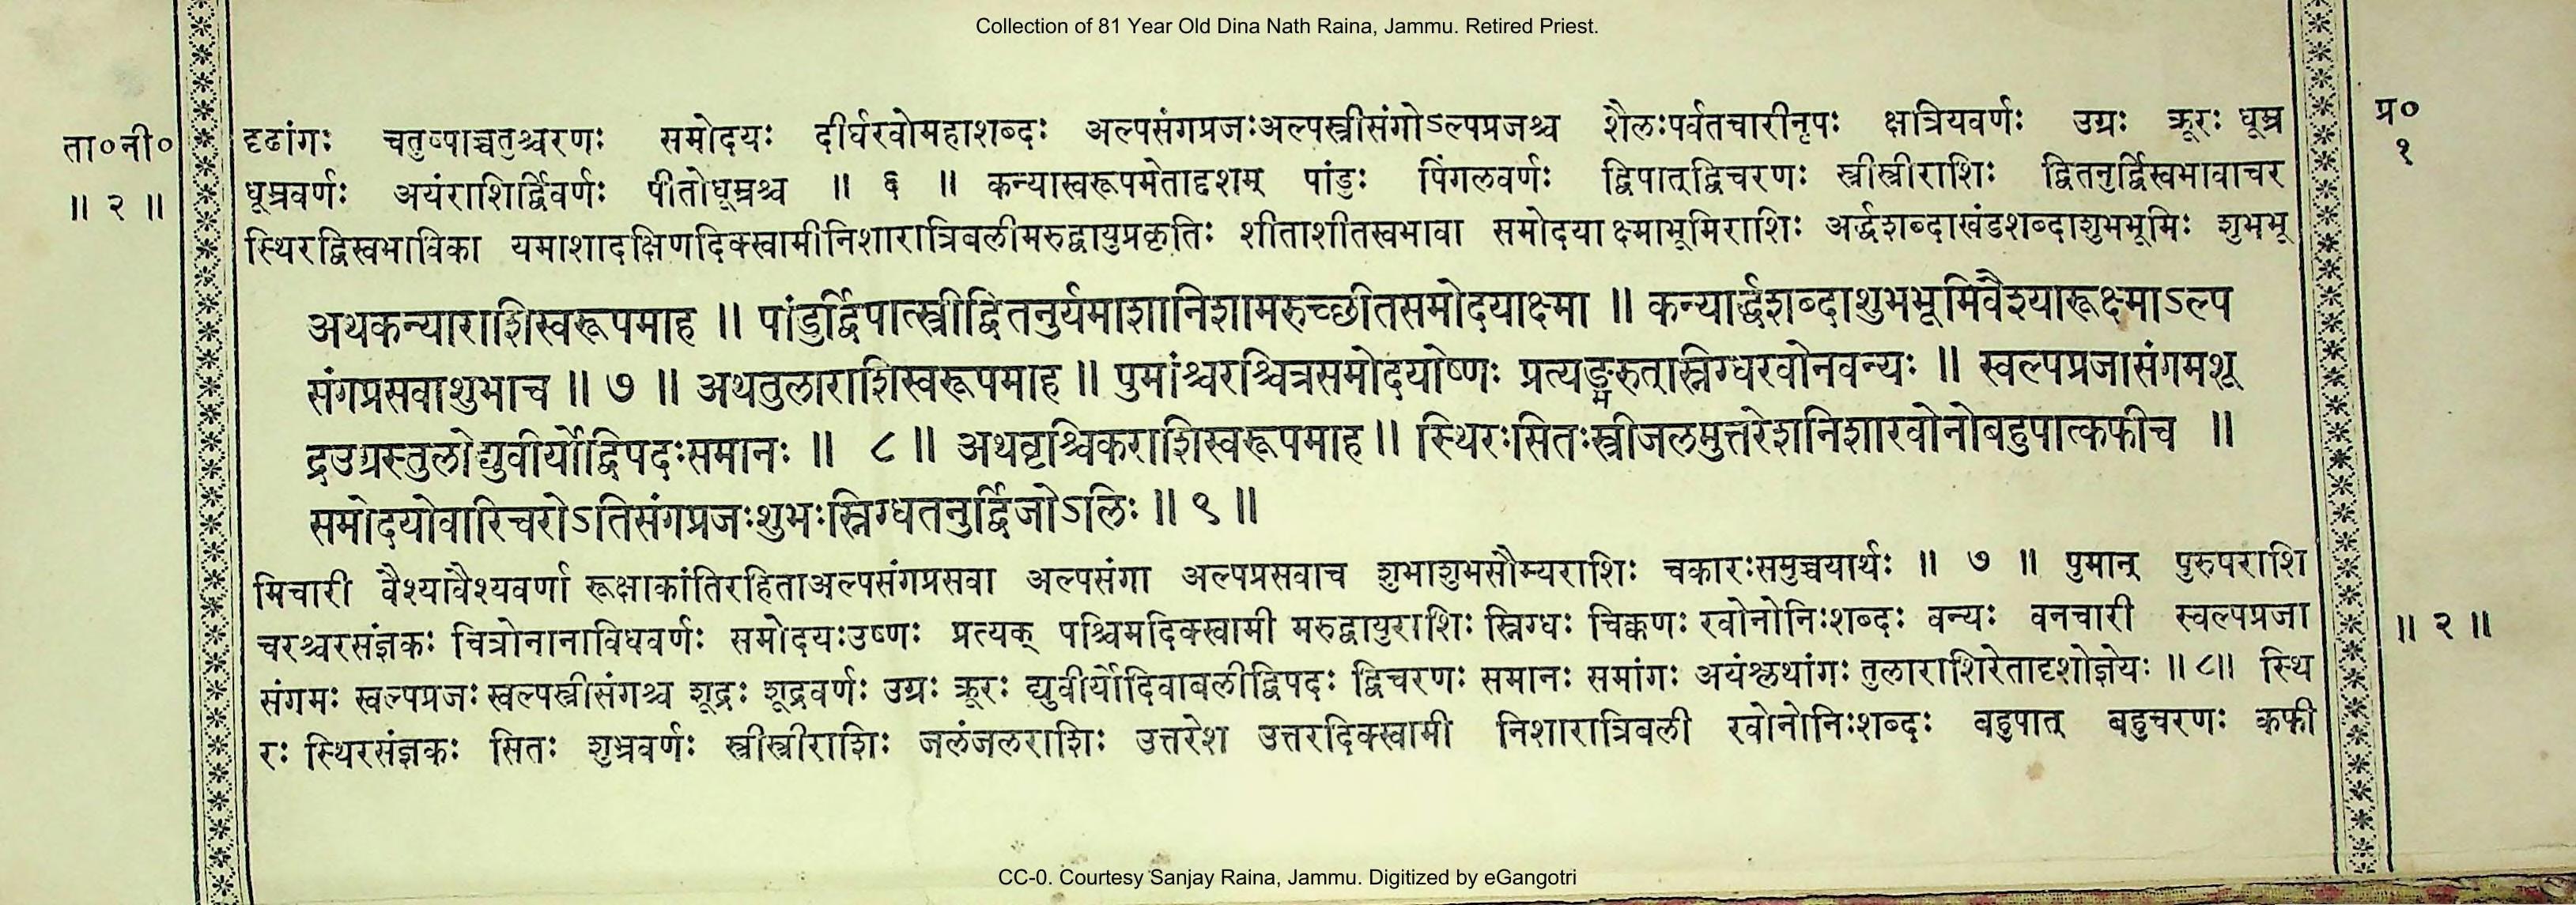 Collection of 81 Year Old Dina Nath Raina, Jammu. Retired Priest.
ता०नी०
॥ २ ॥
प्र०
१
दृढांगः चतुष्पाच्चतुश्चरणः समोदयः दीर्घरवोमहाशब्दः अल्पसंगप्रजःअल्पस्त्रीसंगोऽल्पप्रजश्च शैलःपर्वतचारीनृपः क्षत्रियवर्णः उग्रः क्रूरः धूम्र
धूम्रवर्णः अयंराशिर्द्विवर्णः पीतोधूम्रश्च ॥ ६ ॥ कन्यास्वरूपमेतादृशम् पांडुः पिंगलवर्णः द्विपात्द्विचरणः स्त्रीस्त्रीराशिः द्वितनुर्द्विस्वभावाचर
स्थिरद्विस्वभाविका यमाशादक्षिणदिक्स्वामीनिशारात्रिबलीमरुद्वायुप्रकृतिः शीताशीतस्वभावा समोदया क्ष्माभूमिराशिः अर्द्धशब्दाखंडशब्दाशुभभूमिः शुभभू
अथकन्याराशिस्वरूपमाह ॥ पांडुर्द्विपात्स्त्रीद्वितनुर्यमाशानिशामरुच्छीतसमोदयाक्ष्मा ॥ कन्यार्द्धशब्दाशुभभूमिवैश्यारूक्षमाऽल्प
संगप्रसवाशुभाच ॥ ७ ॥ अथतुलाराशिस्वरूपमाह ॥ पुमांश्चरश्चित्रसमोदयोष्णः प्रत्यङ्मरुत्स्निग्धरवोनवन्यः ॥ स्वल्पप्रजासंगमशू
द्रउग्रस्तुलोद्युवीर्योद्विपदःसमानः ॥ ८ ॥ अथवृश्चिकराशिस्वरूपमाह ॥ स्थिरःसितःस्त्रीजलमुत्तरेशनिशारवोनोबहुपात्कफीच ॥
समोदयोवारिचरोऽतिसंगप्रजःशुभःस्निग्धतनुर्द्विजोऽलिः ॥ ९ ॥
मिचारी वैश्यावैश्यवर्णा रूक्षाकांतिरहिताअल्पसंगप्रसवा अल्पसंगा अल्पप्रसवाच शुभाशुभसौम्यराशिः चकारःसमुच्चयार्थः ॥ ७ ॥ पुमान् पुरुषराशि
चरश्चरसंज्ञकः चित्रोनानाविधवर्णः समोदयःउष्णः प्रत्यक् पश्चिमदिक्स्वामी मरुद्वायुराशिः स्निग्धः चिक्कणः रवोनोनिःशब्दः वन्यः वनचारी स्वल्पप्रजा
संगमः स्वल्पप्रजः स्वल्पस्त्रीसंगश्च शूद्रः शूद्रवर्णः उग्रः क्रूरः द्युवीर्योदिवाबलीद्विपदः द्विचरणः समानः समांगः अयंश्लथांगः तुलाराशिरेतादृशोज्ञेयः ॥ ८॥ स्थि
रः स्थिरसंज्ञकः सितः शुभ्रवर्णः स्त्रीस्त्रीराशिः जलंजलराशिः उत्तरेश उत्तरदिक्स्वामी निशारात्रिबली रवोनोनिःशब्दः बहुपात् बहुचरणः कफी
॥ २ ॥
CC-0. Courtesy Sanjay Raina, Jammu. Digitized by eGangotri